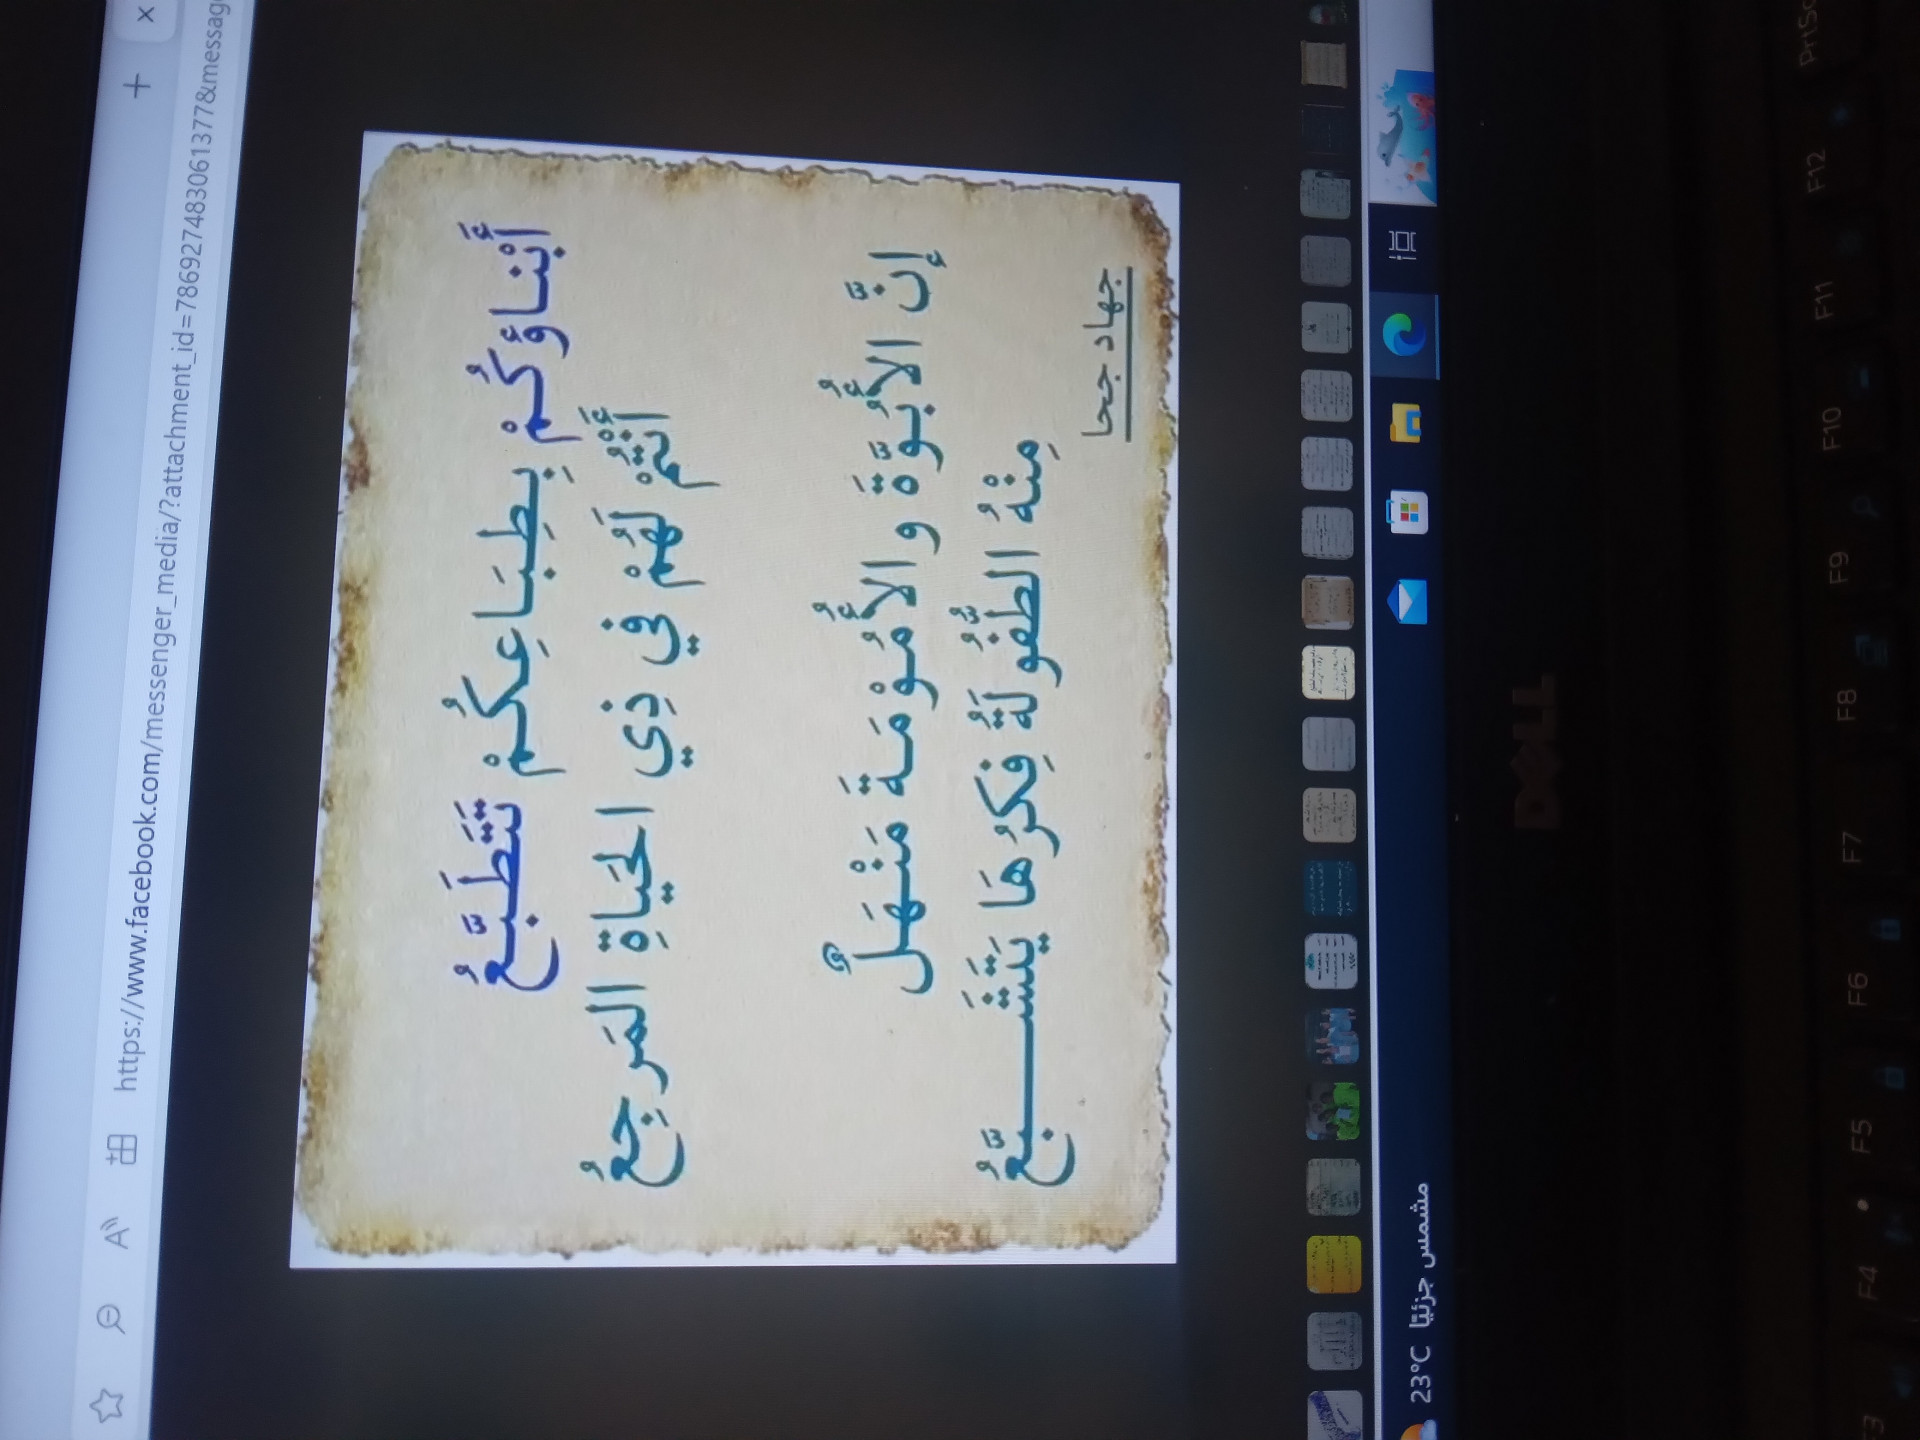 https://www.facebook.com/messenger_media/?attachment_id=786927483061377&messag
أَبْناؤُكُمْ بِطِبَاعِكُمْ تَتَطَبَّعُ
أَنْتُمْ لَهُمْ فِي ذِي الحَياةِ المَرجِعُ
إنَّ الأُبُوَّةَ و الأُمُوْمَةَ مَنْهَلٌ
مِنْهُ الطُّفُولَةُ فِكرُهَا يَتَشَبَّعُ
جهاد جحا
23°C مشمس جزئيًا
DELL
PrtSc
F12
F11
F10
F9
F8
F7
F6
F5
F4
F3